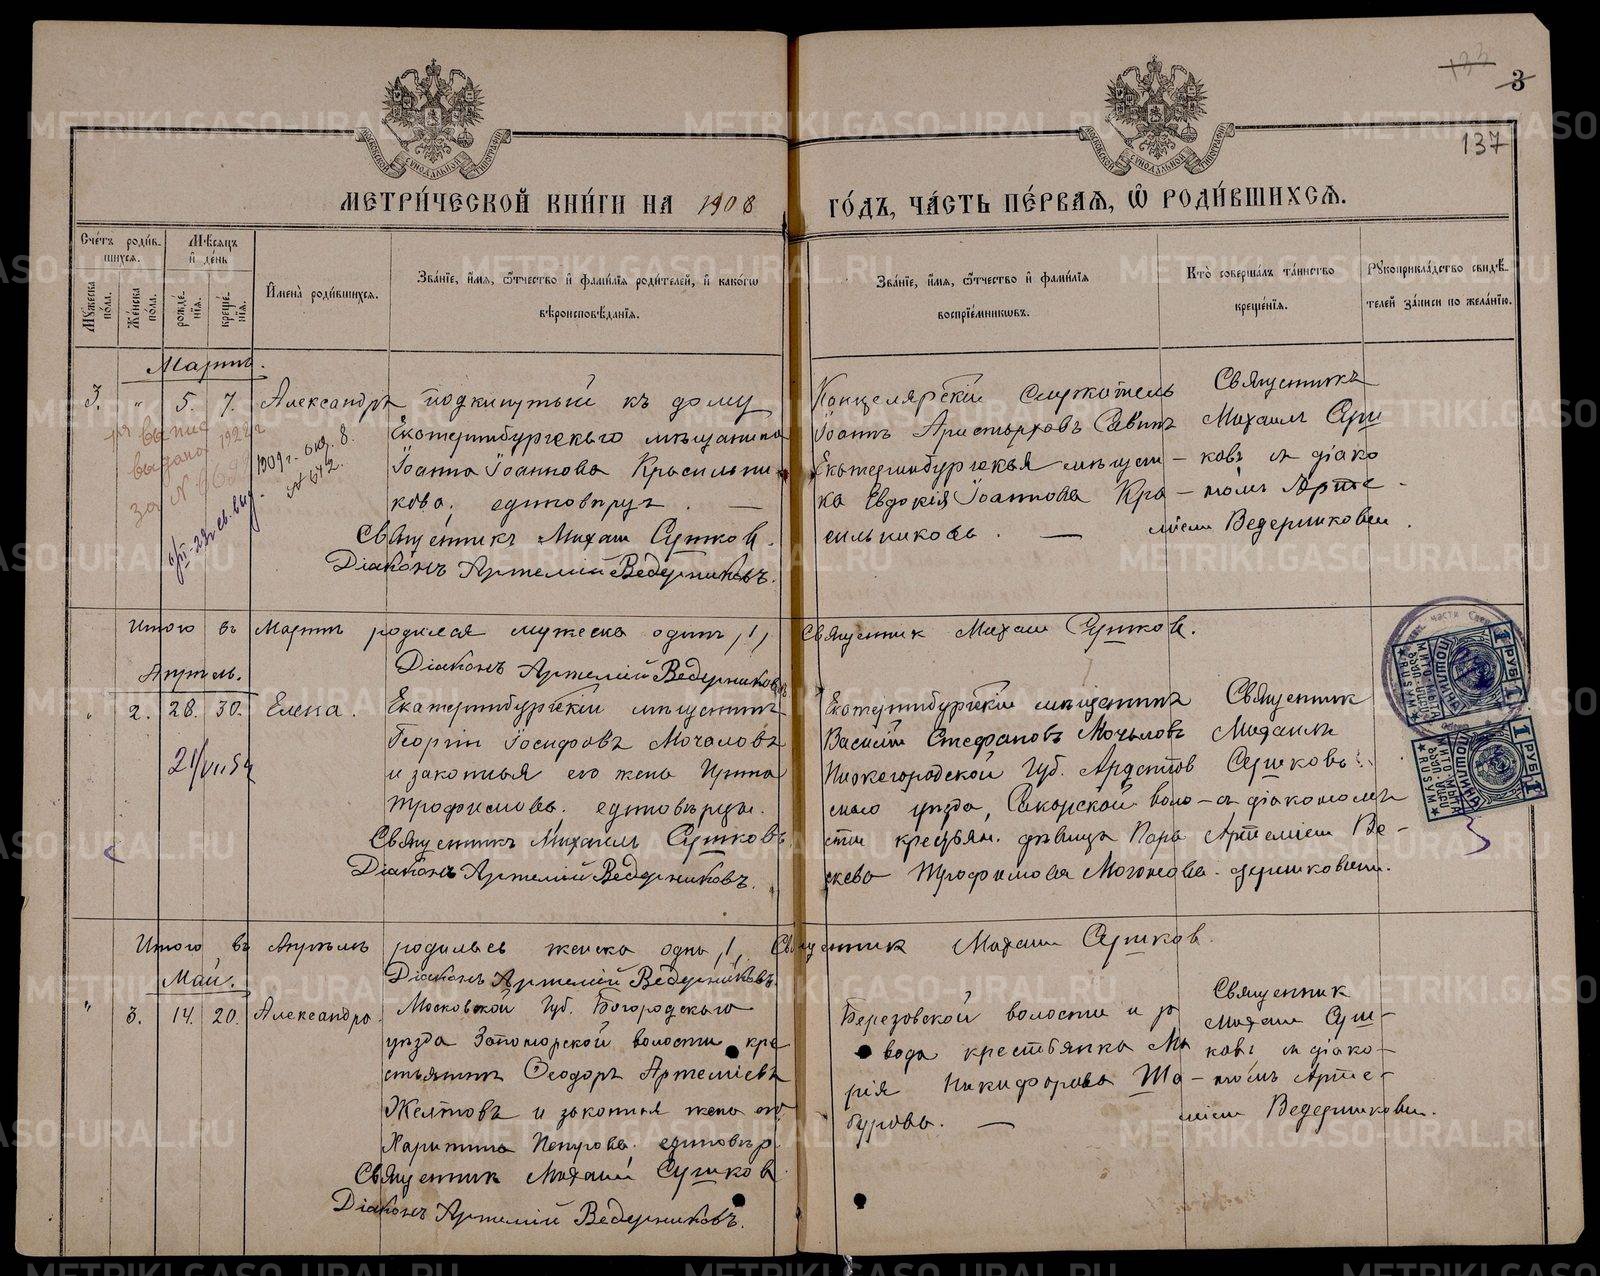 133
3
137
МЕТРИ́ЧЕСКОЙ КНИ́ГИ НА 1908 ГО́ДЪ, ЧА́СТЬ ПЕ́РВАѦ, Ѡ҆ РОДИ́ВШИХСѦ.
Сче́тъ роди́в-
шихся.
Мѣ́сяцъ
и҆ де́нь
Мꙋ́жеска по́ла.
Же́нска по́ла.
рожде́-
нїѧ.
креще́-
нїѧ.
И҆мена̀ роди́вшихся.
Зва́нїе, и҆́мѧ, ѻ҆́тчество и҆ фами́лїѧ роди́телей, и҆ како́гѡ
вѣроисповѣ́данїѧ.
Зва́нїе, и҆́мѧ, ѻ҆́тчество и҆ фами́лїѧ
воспрїе́мникѡвъ.
Кто̀ соверша́лъ та́инство
креще́нїѧ.
Рꙋкоприкла́дство свидѣ́-
телей за́писи по жела́нїю.
Мартъ.
3. " 5. 7. Александръ подкинутый къ дому
Екатеринбургскаго мѣщанина
Іоанна Іоаннова Красильни-
кова, единовѣрецъ. —
Священникъ Михаилъ Сушковъ.
Діаконъ Артемій Ведерниковъ.
1909 г. окт. 8.
№ 642.
Канцелярскій служитель
Іоаннъ Аристарховъ Савинъ
Екатеринбургская мѣщан-
ка Евдокія Іоаннова Кра-
сильникова. —
Священникъ
Михаилъ Суш
ковъ съ діако
номъ Арте-
міемъ Ведерниковым.
Итого въ Мартѣ родился мужеска одинъ /1/ Священник Михаил Сушков.
Діаконъ Артемій Ведерниковъ
Апрѣль.
" 2. 28. 30. Елена. Екатеринбургскій мѣщанинъ
Георгій Іосифовъ Мочаловъ
и законная его жена Ирина
Трофимова, единовѣрцы.
Священникъ Михаилъ Сушковъ
Діаконъ Артемій Ведерниковъ.
Екатеринбургскій мѣщанинъ
Василій Стефановъ Мочаловъ
Нижегородской Губ. Ардатов
скаго уѣзда, волo-
сти крестьян. дѣвица Пара
скева Трофимова
Священник
Михаилъ
Сушковъ
съ діакономъ
Артеміем Ве-
дерниковым.
1 РУБ 1
ПОШЛИНА
1 РУБ 1
ПОШЛИНА
Итого въ Апрѣлѣ родилась женска одна /1/. Священник Михаил Сушков.
Діаконъ Артемій Ведерниковъ.
Май.
" 3. 14. 20. Александра. Московской Губ. Богородскаго
уѣзда Запонорской волости кре
стьянинъ Ѳеодоръ Артеміевъ
Желтовъ и законная жена его
Харитина Петрова, единовѣр.
Священник Михаил Сушков
Діаконъ Артемій Ведерниковъ.
Березовской волости и за
вода крестьянка Ма
рія Никифорова Ша-
бурова. —
Священник
Михаил Суш-
ковъ съ діако-
номъ Арте-
міем Ведерниковым.
METRIKI.GASO-URAL.RU